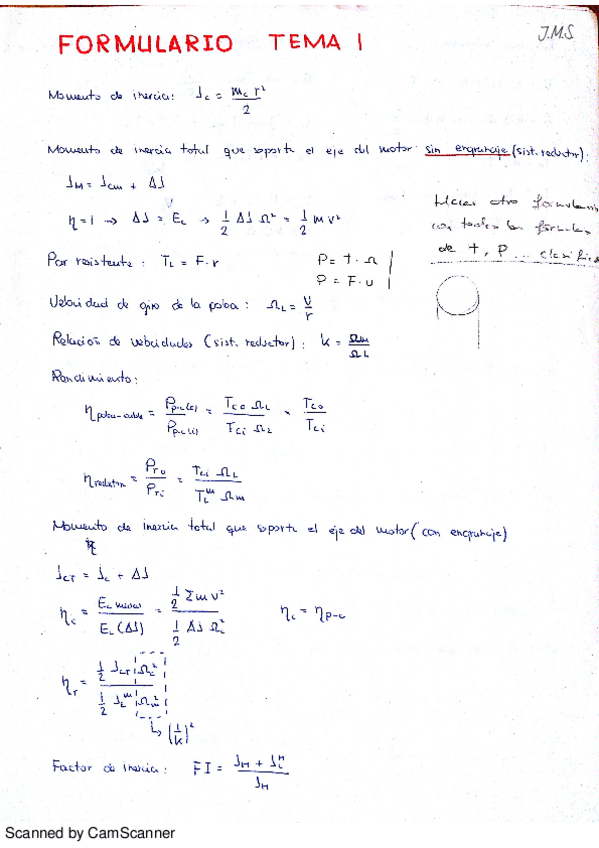 J.M.S
FORMULARIO TEMA 1
Momento de inercia: Jc = mc r² / 2
Momento de inercia total que soporta el eje del motor sin engranaje (sist. reductor):
JM = Jcm + ΔJ
η = 1 → ΔJ = EL → 1/2 ΔJ Ω² = 1/2 m v²
Hacer otro formulario
con todas las fórmulas
de T, P...
Par resistente: TL = F·r
P = T·Ω
P = F·v
Velocidad de giro de la polea: ΩL = v/r
Relación de velocidades (sist. reductor): k = Ωm/ΩL
Rendimiento:
η polea-cable = Pp-c(o) / Pp-c(i) = Tco ΩL / Tci ΩL = Tco / Tci
η reductor = Pro / Pri = Tci ΩL / TL^m Ωm
Momento de inercia total que soporta el eje del motor (con engranaje)
JCT = Jc + ΔJ
ηi = EL masas / EL(ΔJ) = 1/2 Σ m v² / 1/2 ΔJ Ωc²
ηi = ηp-c
ηr = 1/2 JCT Ωc² / 1/2 JL^m Ωm²
↳ (1/k)²
Factor de inercia: FI = JM + JL^m / JM
Scanned by CamScanner